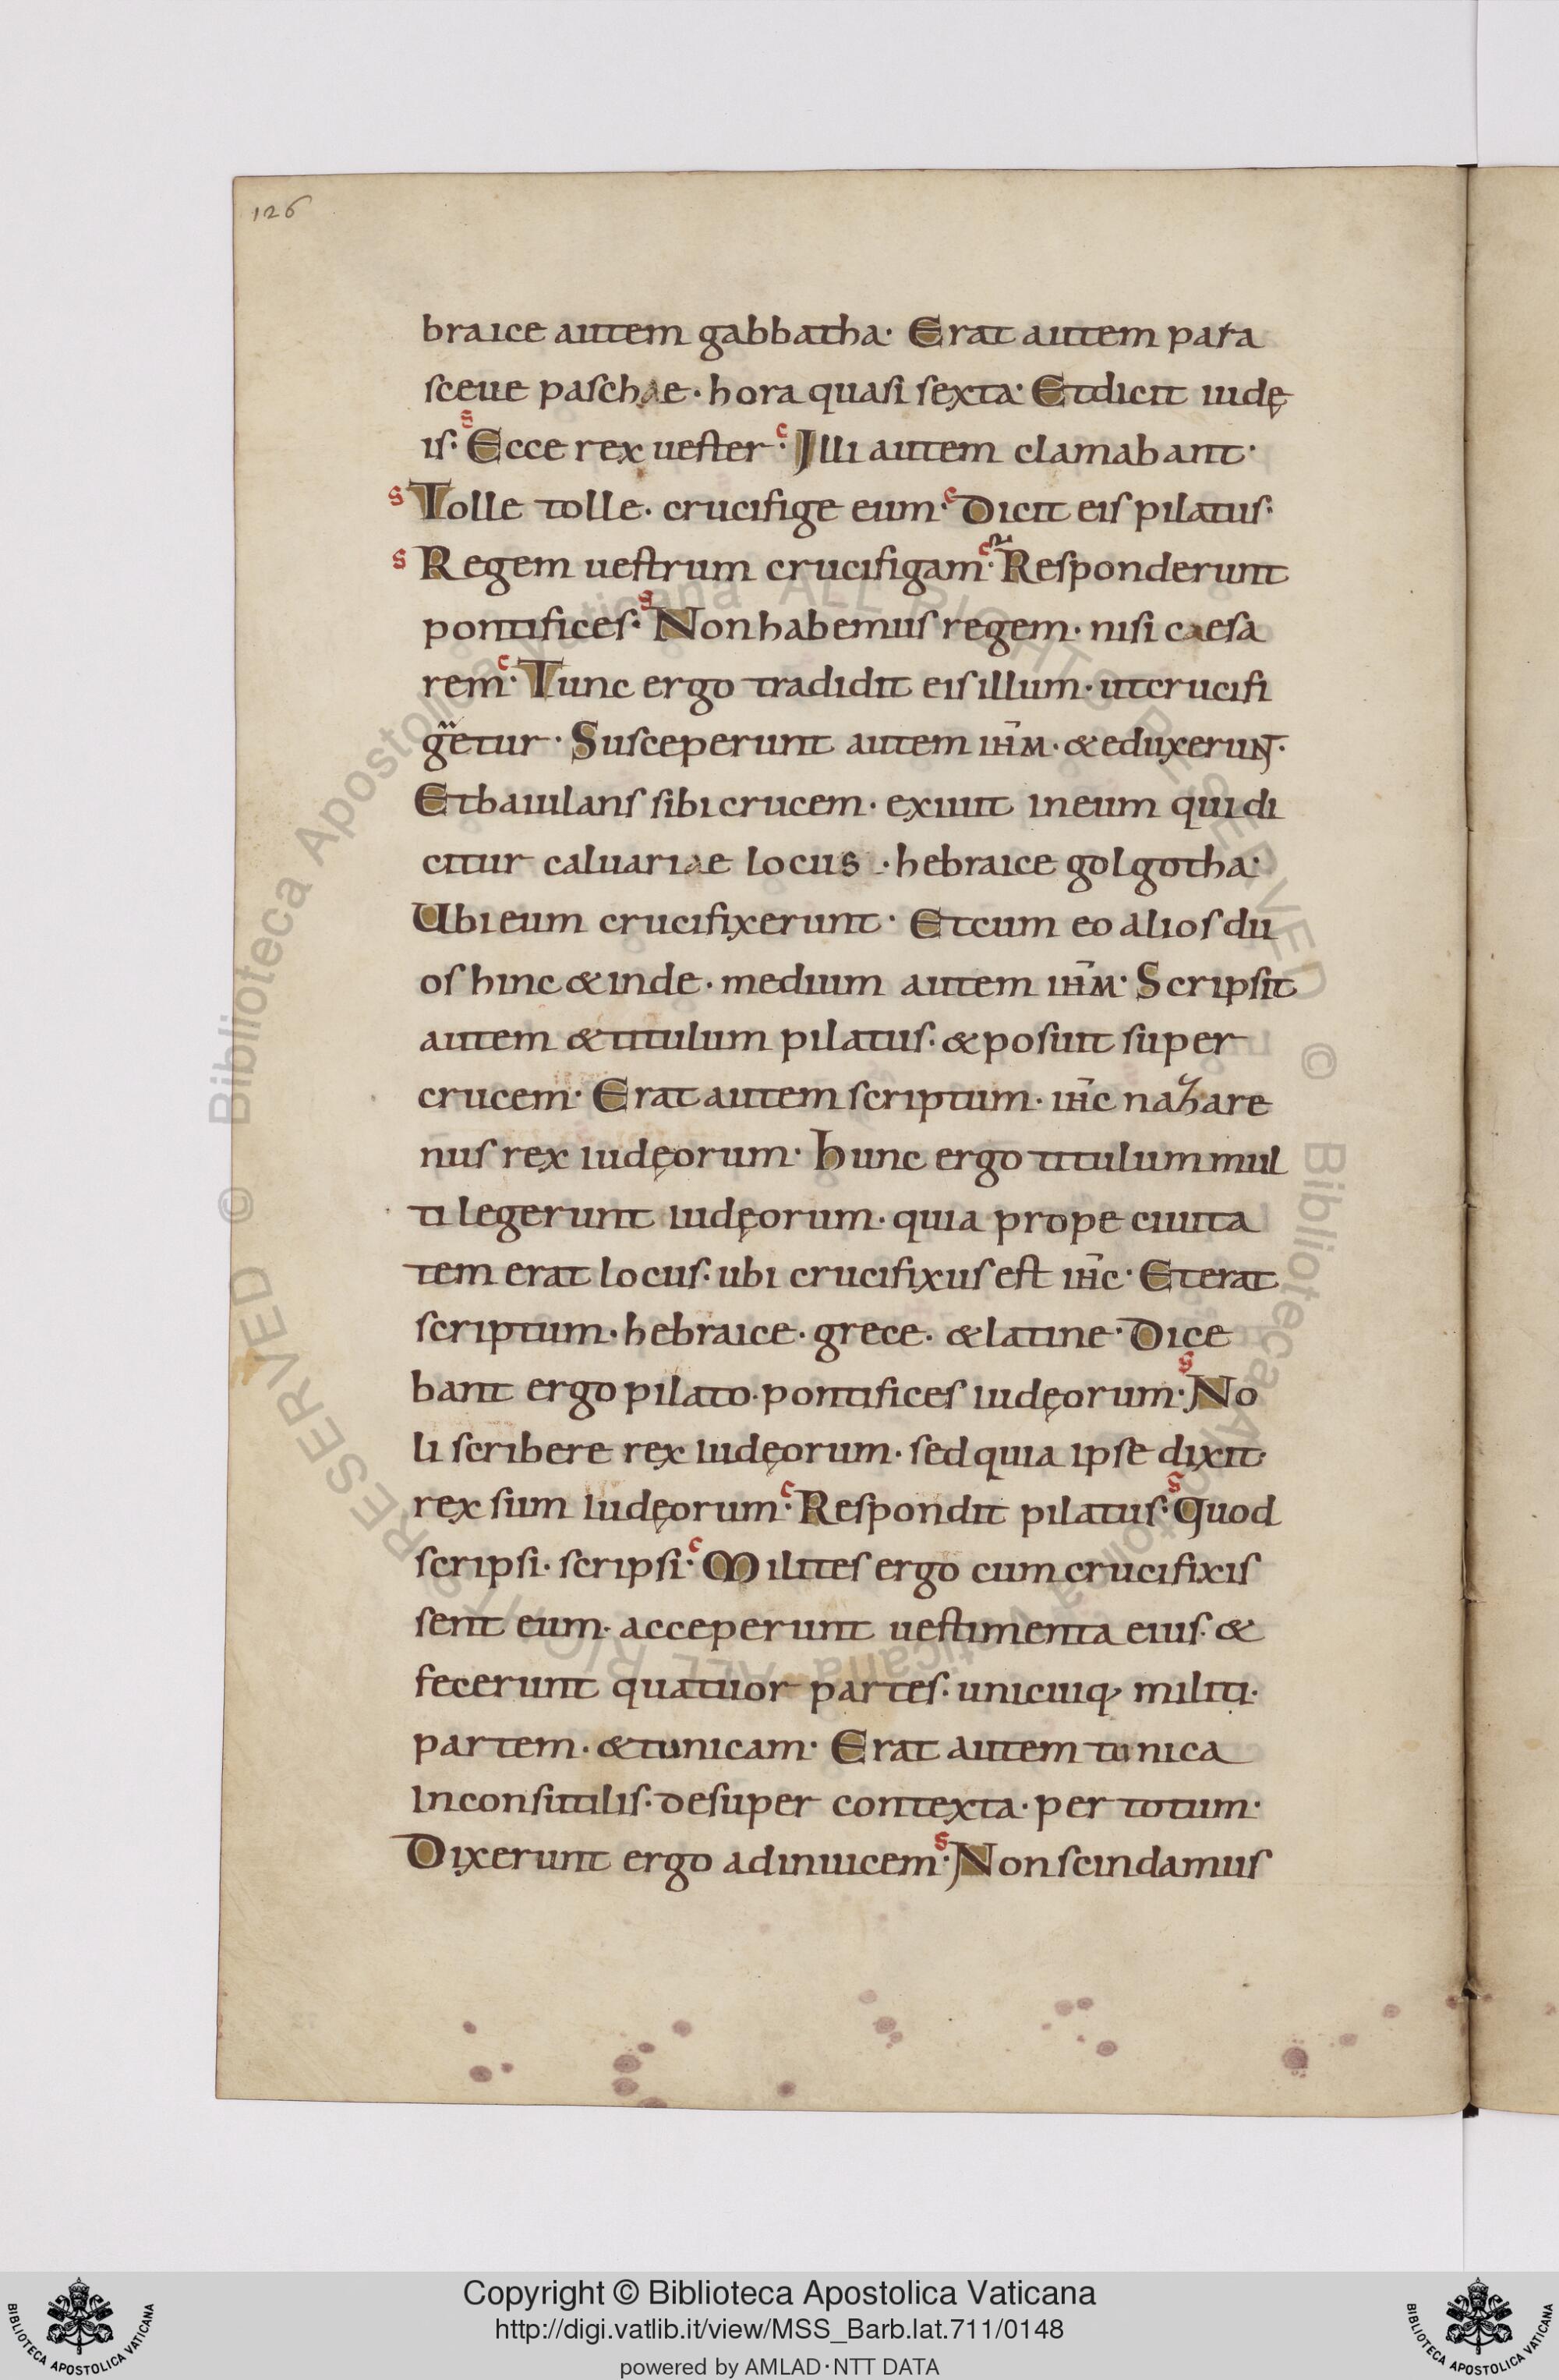 126
braice autem gabbatha· Erat autem para
sceue paschae· hora quasi sexta· Et dicit iudę
is· s Ecce rex uester· c Illi autem clamabant·
s Tolle tolle· crucifige eum· c Dicit eis pilatus·
s Regem uestrum crucifigam· c Responderunt
pontifices· s Non habemus regem· nisi caesa
rem· c Tunc ergo tradidit eis illum· ut crucifi
getur· Susceperunt autem ihm̄· & eduxerunt·
Et baiulans sibi crucem· exiuit in eum qui di
citur caluariae locus· hebraice golgotha·
Ubi eum crucifixerunt· Et cum eo alios du
os hinc & inde· medium autem ihm̄· Scripsit
autem & titulum pilatus· & posuit super
crucem· Erat autem scriptum· ihc̄ nazare
nus rex iudęorum· hunc ergo titulum mul
ti legerunt iudęorum· quia prope ciuita
tem erat locus· ubi crucifixus est ihc̄· Et erat
scriptum· hebraice· grece· & latine· Dice
bant ergo pilato· pontifices iudęorum· s No
li scribere rex iudęorum· sed quia ipse dixit·
rex sum iudęorum· c Respondit pilatus· s Quod
scripsi· scripsi· c Milites ergo cum crucifixis
sent eum· acceperunt uestimenta eius· &
fecerunt quatuor partes· unicuiq· militi·
partem· & tunicam· Erat autem tunica
inconsutilis· desuper contexta· per totum·
Dixerunt ergo adinuicem· s Non scindamus
© Biblioteca Apostolica Vaticana ALL RIGHTS RESERVED © Biblioteca Apostolica Vaticana ALL RIGHTS RESERVED
Copyright © Biblioteca Apostolica Vaticana
http://digi.vatlib.it/view/MSS_Barb.lat.711/0148
powered by AMLAD·NTT DATA
BIBLIOTECA APOSTOLICA VATICANA
BIBLIOTECA APOSTOLICA VATICANA